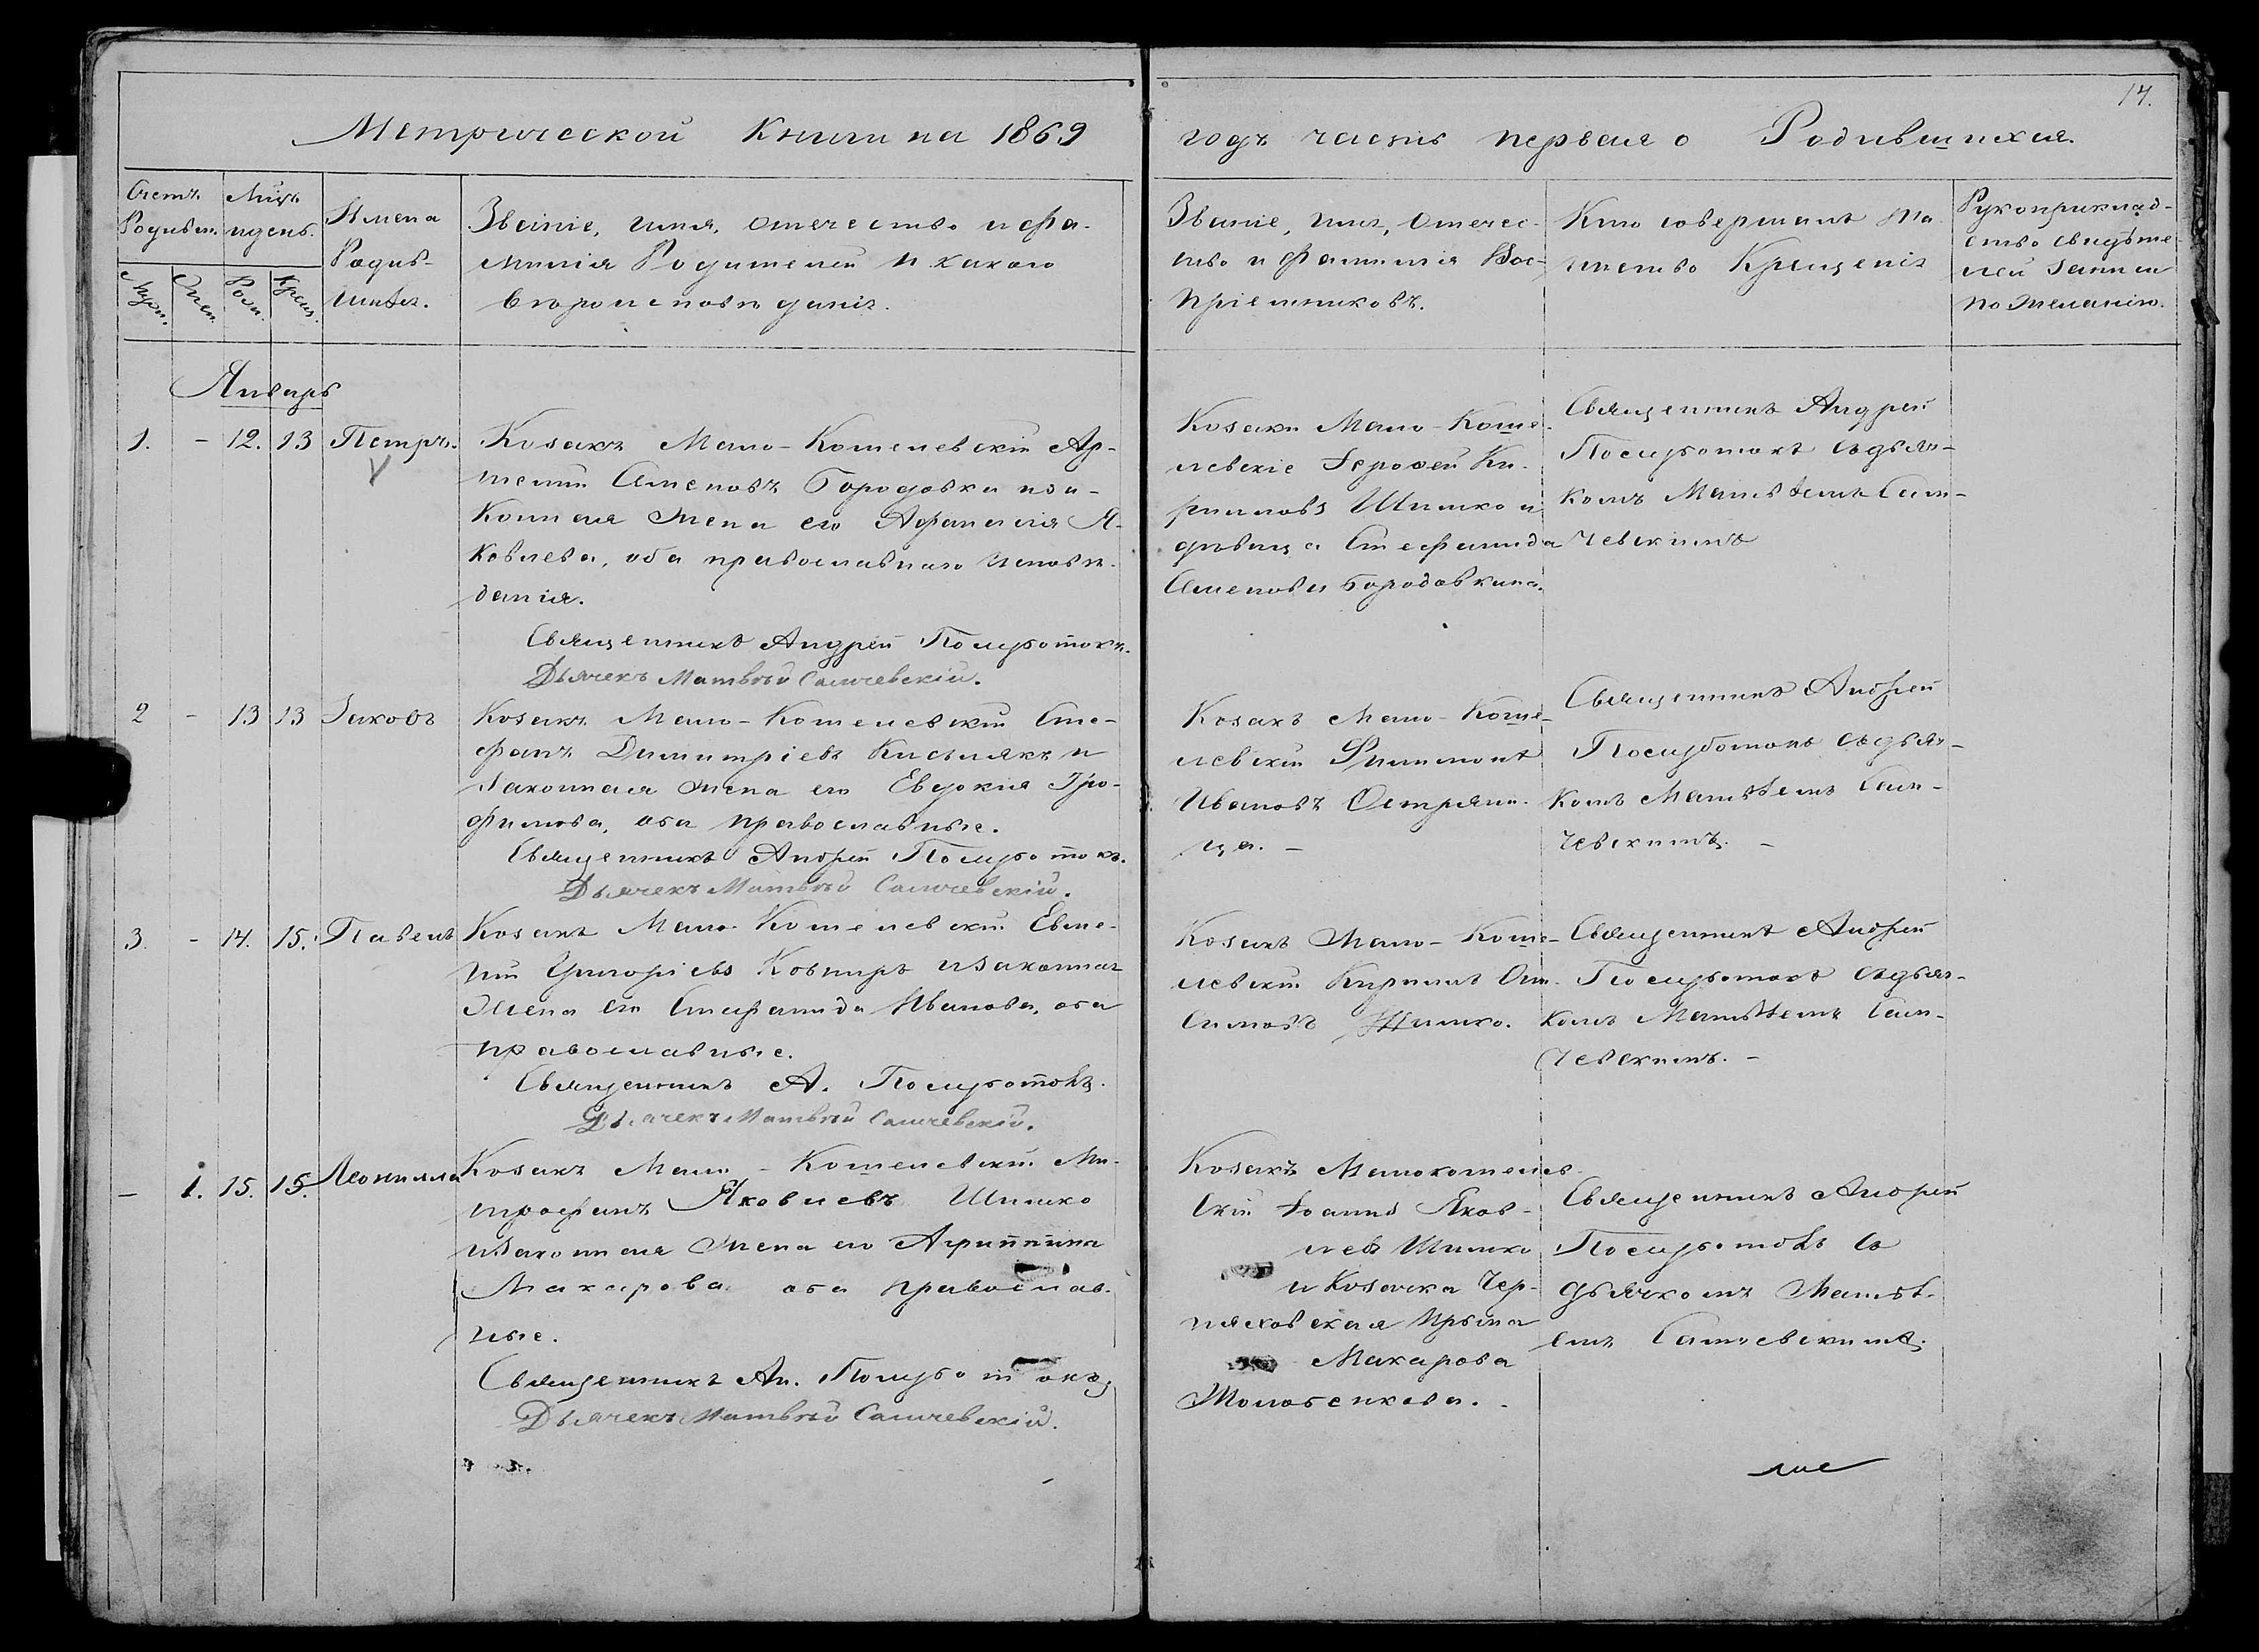 14.
Метрической Книги на 1869
годъ часть первая о Родившихся.
Счетъ Родивш.
Муж.
Жен.
Мѣс. и день.
Рожд.
Крещ.
Имена
Родив-
шихся.
Званіе, имя, отечество и фа-
милія Родителей и какого
вѣроисповѣданія.
Званіе, имя, отечес-
тво и фамилія Вос-
пріемниковъ.
Кто совершалъ та-
инство Крещенія
Рукоприклад-
ство свидѣте-
лей записи
по желанію.
Январь
1. - 12. 13 Петръ.
Козакъ Мало-Кошелевскій Ар-
темій Семеновъ Бородавка и за-
конная жена его Афанасія Я-
ковлева, оба православнаго исповѣ-
данія.
Священникъ Андрей Полуботокъ.
Дьячекъ Матвѣй Самчевскій.
Козаки Мало-Коше-
левскіе Іерофей Ки-
рилловъ Шишко и
дѣвица Стефанида
Семенова Бородавкина.
Священникъ Андрей
Полуботокъ съ дьяч-
комъ Матвѣемъ Сам-
чевскимъ
2 - 13 13 Іаковъ
Козакъ Мало-Кошелевскій Сте-
фанъ Димитріевъ Кисьлякъ и
законная жена его Евдокія Тро-
фимова, оба православные.
Священникъ Андрей Полуботокъ.
Дьячекъ Матвѣй Самчевскій.
Козакъ Мало-Коше-
левскій Филимонъ
Ивановъ Остряни-
ца. -
Священникъ Андрей
Полуботокъ съ дьяч-
комъ Матвѣемъ Сам-
чевскимъ. -
3. - 14. 15. Павелъ
Козакъ Мало-Кошелевскій Евме-
ній Григоріевъ Ковниръ и законная
жена его Стефанида Иванова, оба
православные.
Священникъ А. Полуботокъ.
Дьячекъ Матвѣй Самчевскій.
Козакъ Мало-Коше-
левскій Кириллъ
симовъ Шишко.
Священникъ Андрей
Полуботокъ съ дьяч-
комъ Матвѣемъ Сам-
чевскимъ. -
- 1. 15. 15. Леонилла
Козакъ Мало-Кошелевскій Ми-
трофанъ Яковлевъ Шишко
и законная жена его Агриппина
Макарова оба православ-
ные.
Священникъ Ан. Полуботокъ
Дьячекъ Матвѣй Самчевскій.
Козакъ Малокошелев-
скій Іоаннъ Яков-
левъ Шишко
и Козачка Чер-
няховская Ирина
Макарова
Шолобенкова. -
Священникъ Андрей
Полуботокъ съ
дьячкомъ Матвѣ-
емъ Самчевскимъ.